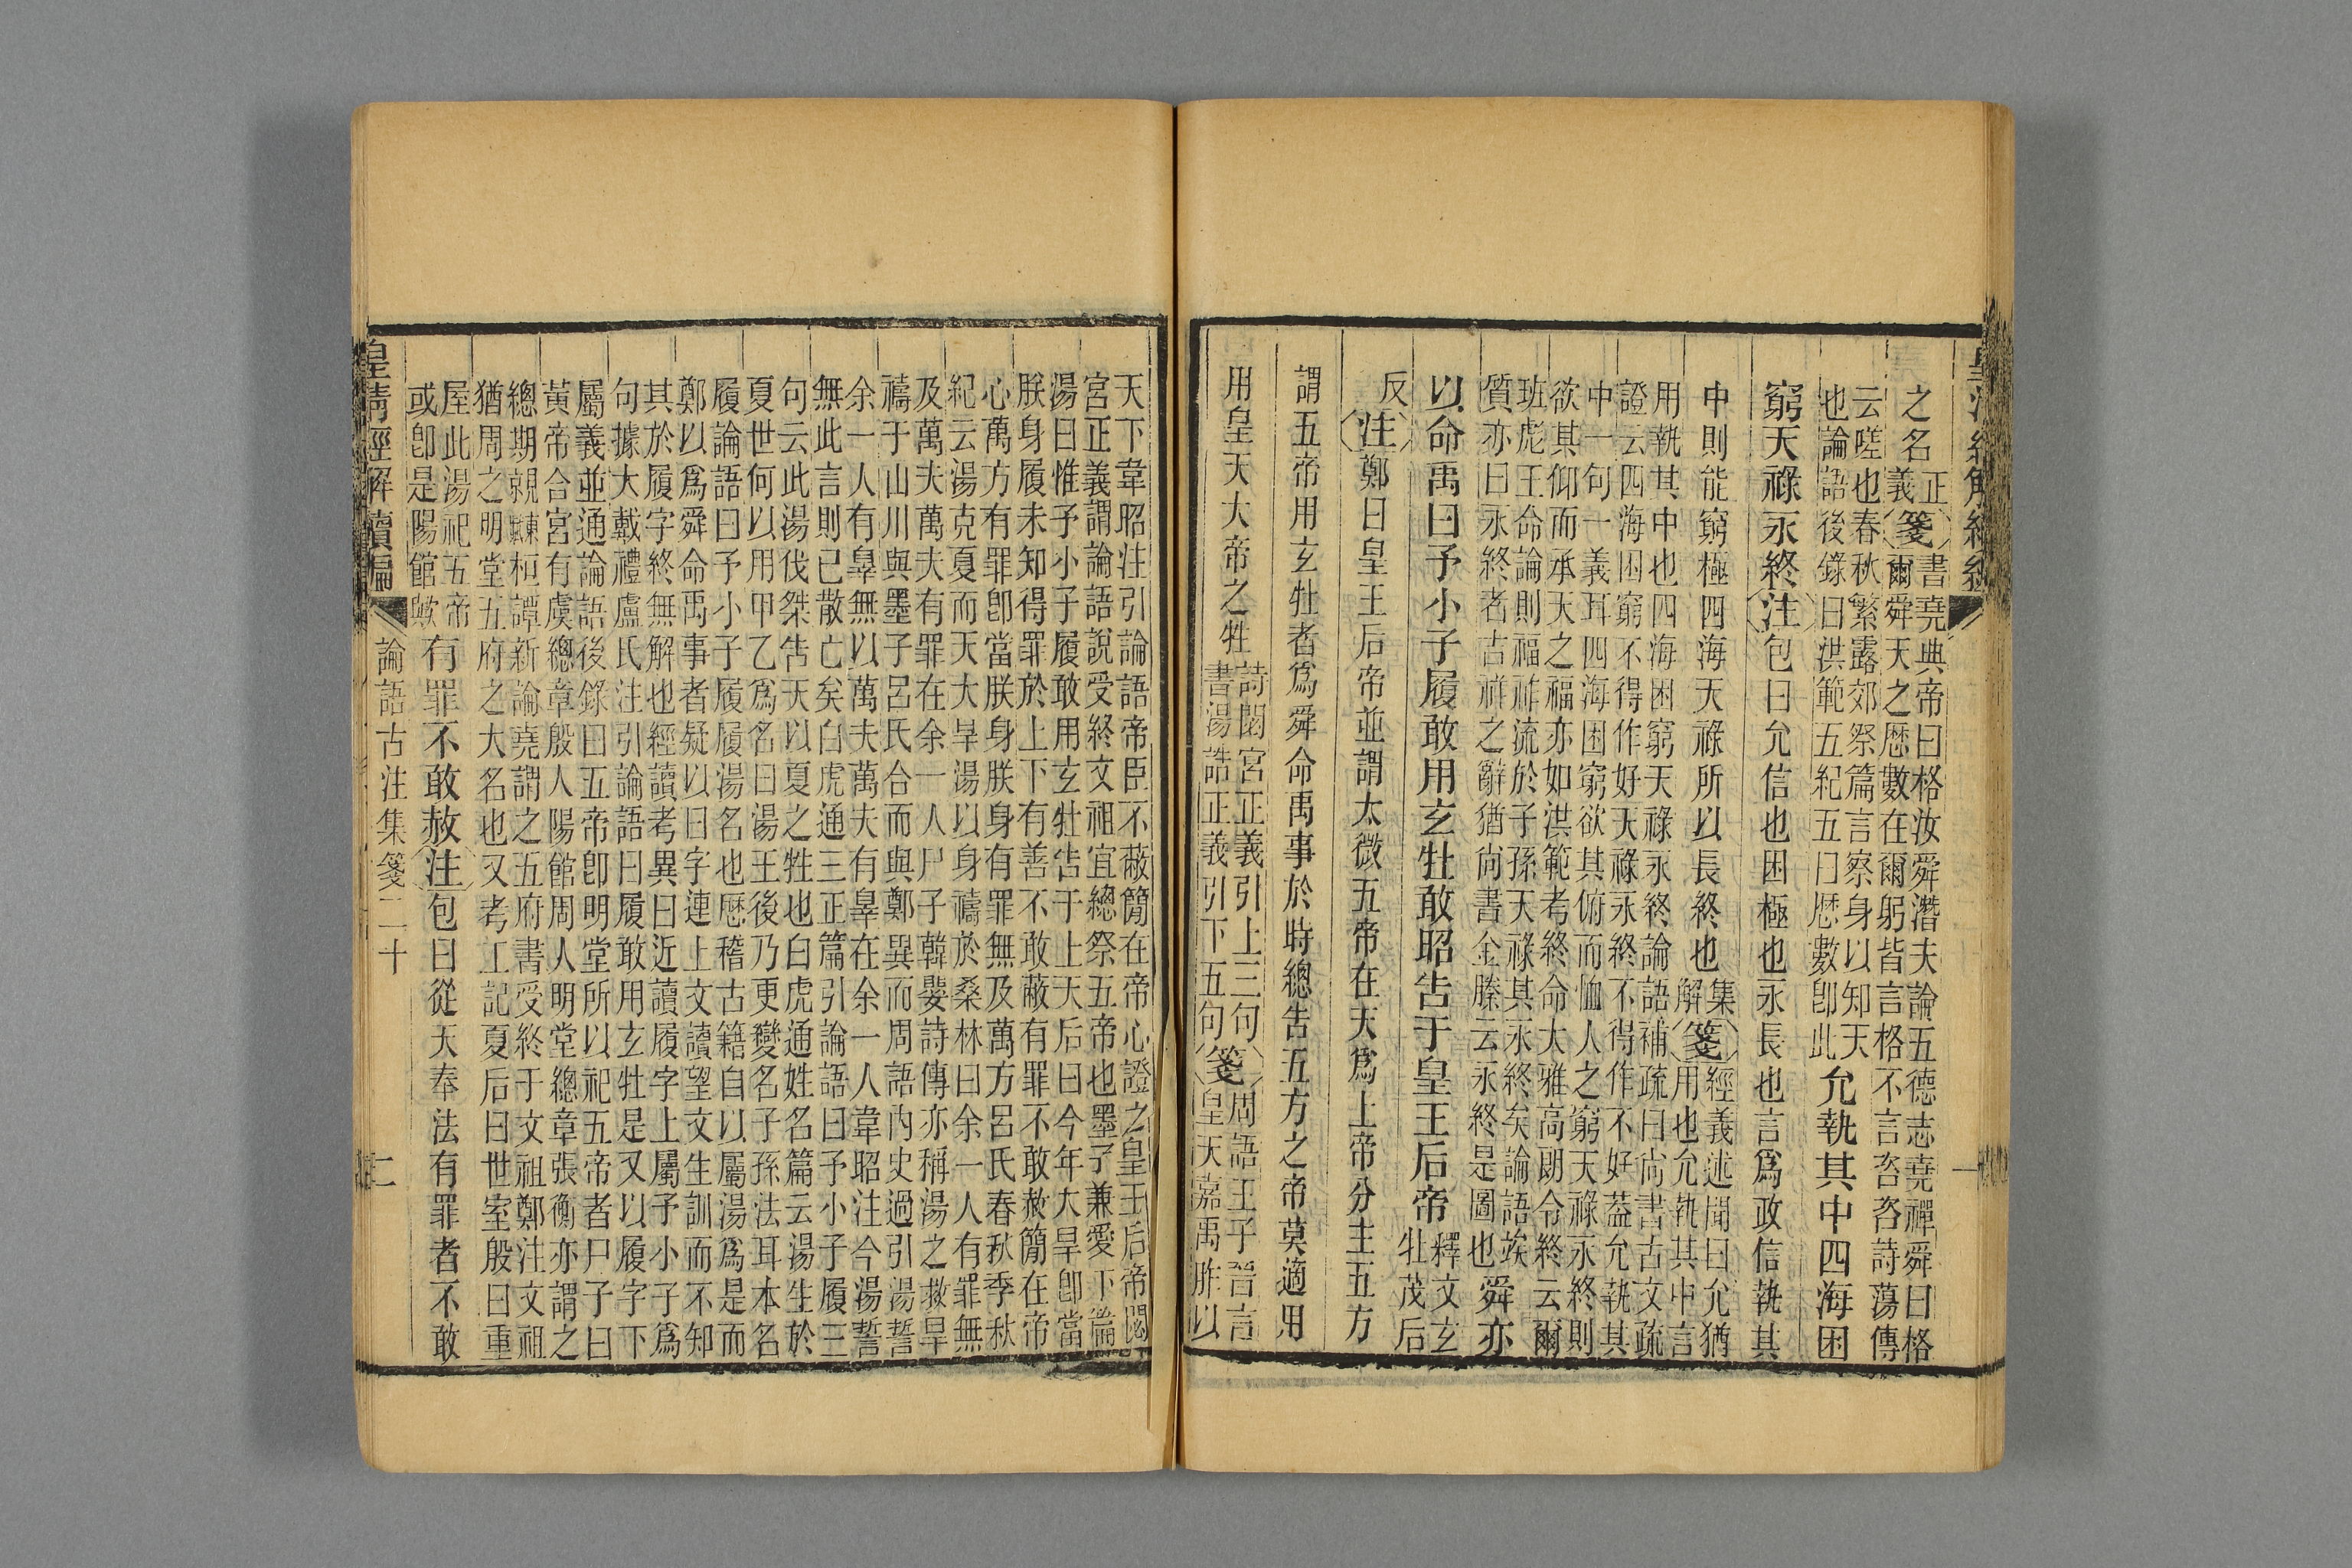 之名
正
義
箋
書堯典帝曰格汝舜潛夫論五德志堯禪舜曰格
爾舜天之厯數在爾躬皆言格不言咨咨詩蕩傳
云嗟也春秋繁露郊祭篇言察身以知天
也論語後錄曰洪範五紀五曰厯數卽此
允執其中四海困
窮天祿永終注包曰允信也困極也永長也言爲政信執其
中則能窮極四海天祿所以長終也
集
解
箋
經義述聞曰允猶
用也允執其中言
用執其中也四海困窮天祿永終論語補疏曰尚書古文疏
證云四海困窮不得作好天祿永終不得作不好葢允執其
中一句一義耳四海困窮欲其俯而恤人之窮天祿永終則
欲其仰而承天之福亦如洪範考終命大雅高朗令終云爾
班彪王命論則福祚流於子孫天祿其永終矣論語竢
質亦曰永終者古祥之辭猶尚書金縢云永終是圖也
舜亦
以命禹曰予小子履敢用玄牡敢昭告于皇王后帝
釋文玄
牡茂后
反
注鄭曰皇王后帝並謂太微五帝在天爲上帝分主五方
謂五帝用玄牡者爲舜命禹事於時總告五方之帝莫適用
用皇天大帝之牲
詩閟宮正義引上三句
書湯誥正義引下五句
箋
周語王子晉言
皇天嘉禹胙以
天下韋昭注引論語帝臣不蔽簡在帝心證之皇王后帝閟
宮正義謂論語說受終文祖宜總祭五帝也墨子兼愛下篇
湯曰惟予小子履敢用玄牡告于上天后曰今年大旱卽當
朕身履未知得罪於上下有善不敢蔽有罪不敢赦簡在帝
心萬方有罪卽當朕身朕身有罪無及萬方呂氏春秋季秋
紀云湯克夏而天大旱湯以身禱於桑林曰余一人有罪無
及萬夫萬夫有罪在余一人尸子韓嬰詩傳亦稱湯之救旱
禱于山川與墨子呂氏合而與鄭異而周語內史過引湯誓
余一人有辠無以萬夫萬夫有辠在余一人韋昭注今湯誓
無此言則已散亡矣白虎通三正篇引論語曰予小子履三
句云此湯伐桀告天以夏之牲也白虎通姓名篇云湯生於
夏世何以用甲乙爲名曰湯王後乃更變名子孫法耳本名
履論語曰予小子履履湯名也歷稽古籍自以屬湯爲是而
鄭以爲舜命禹事者疑以曰字連上文讀望文生訓而不知
其於履字終無解也經讀考異曰近讀履字上屬予小子爲
句據大戴禮盧氏注引論語曰履敢用玄牡是又以履字下
屬義並通論語後錄曰五帝卽明堂所以祀五帝者尸子曰
黃帝合宮有虞總章殷人陽館周人明堂總章張衡亦謂之
總期親棘桓譚新論堯謂之五府書受終于文祖鄭注文祖
猶周之明堂五府之大名也又考工記夏后曰世室殷曰重
屋此湯祀五帝
或卽是陽館歟
有罪不敢赦注包曰從天奉法有罪者不敢
皇清經解續編
論語古注集箋二十
二